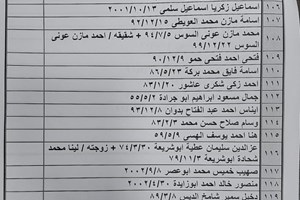 ١٠٦ اسماعيل زكريا اسماعيل سلمي ٢٠٠١/١٠/١٣
١٠٧ أسامة مازن محمد العويطي ٩٢/١٢/١٥
١٠٨ محمد مازن عوني السوس ٩٤/٧/٥ + شقيقه / احمد مازن عوني
السوس ٩٩/١٢/٢٢
١٠٩ فتحي احمد فتحي حمو ٩٠/١٢/٩
١١٠ اسامة فايق محمد بركة ٨٦/٥/٢٣
١١١ احمد زكي شكري عاشور ٨٣/١/٢٠
١١٢ جمال مسعود ابراهيم ابو جرادة ٥٥/٥/٢
١١٣ ايناس احمد عبد الفتاح بدوان ٩٣/١١/٨
١١٤ وسام صلاح حسن محمد ٨٣/٢/٣
١١٥ هنا احمد يوسف الهسي ٥٩/٥/٩
١١٦ عزالدين سليمان عطية ابوشريعة ٧٤/٣/٣٠ + زوجته / لينا محمد
شحادة ابوشريعة ٧٩/١١/٣
١١٧ صهيب خميس محمد ابوعصر ٢٠٠٢/٩/٨
١١٨ منصور خالد احمد ابوزايدة ٢٠٠٢/٤/٣٠
١١٩ دخيل سمير شامخ الديس ٨٩/٣/٨